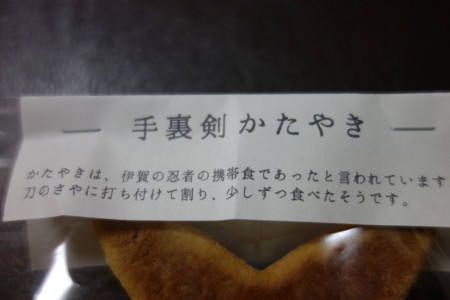 手裏剣かたやき
かたやきは、伊賀の忍者の携帯食であったと言われています
刀のさやに打ち付けて割り、少しずつ食べたそうです。